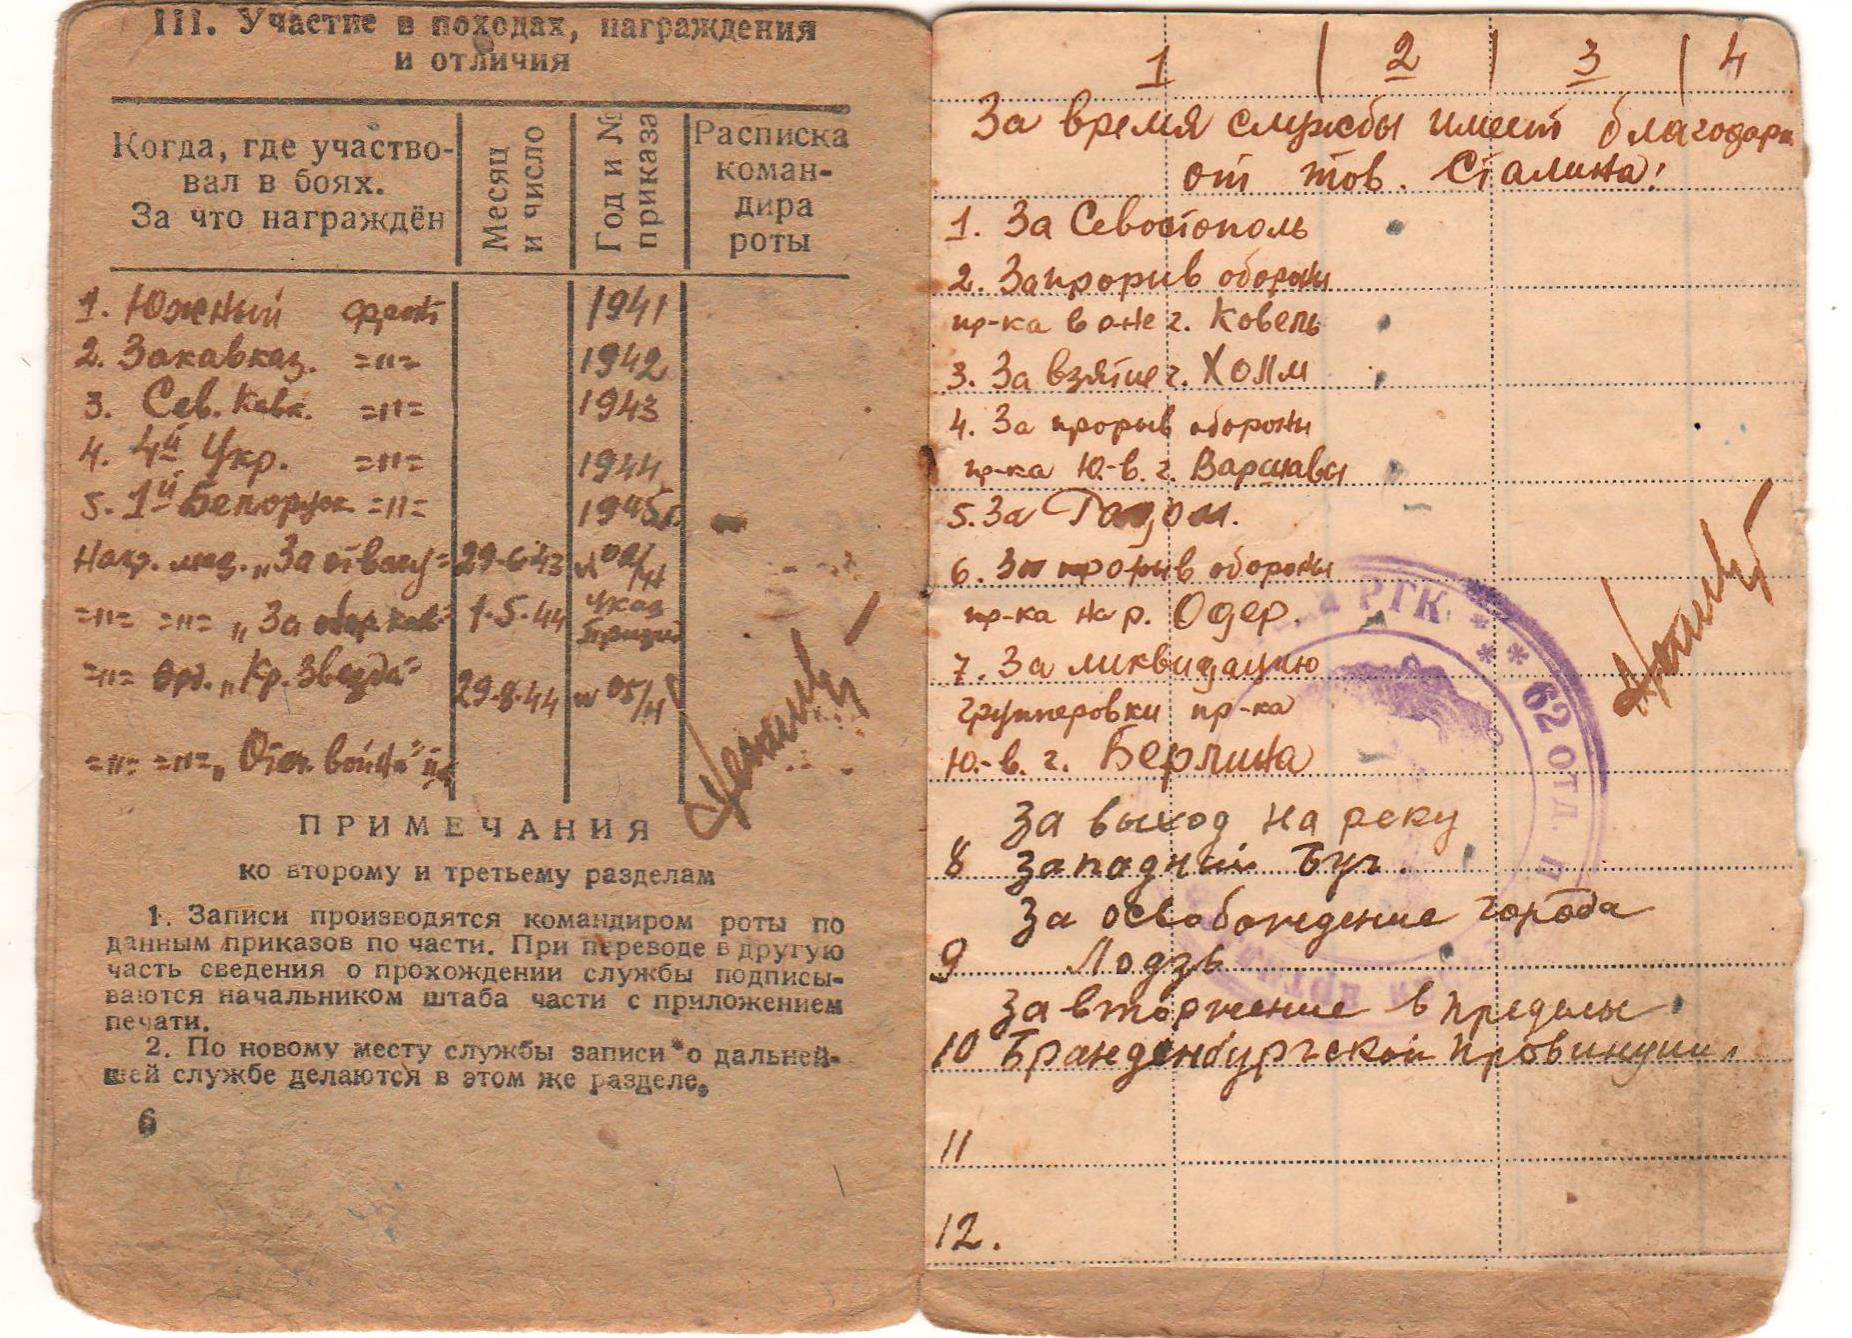 III. Участие в походах, награждения
и отличия
Когда, где участво-
вал в боях.
За что награждён
Месяц
и число
Год и №
приказа
Расписка
коман-
дира
роты
1. Южный фронт 1941
2. Закавказ. =〃= 1942
3. Сев. Кавк. =〃= 1943
4. 4й Укр. =〃= 1944
5. 1й Белорус =〃= 1945г
Нагр. мед. „За отвагу" 29.6.43 № 02/н
=〃= =〃= „За обор. кав" 1.5.44 Указ
=〃= Орд. „Кр. Звезда" 29.8.44 № 05/н
=〃= =〃= „Отеч. война"
ПРИМЕЧАНИЯ
ко второму и третьему разделам
1. Записи производятся командиром роты по
данным приказов по части. При переводе в другую
часть сведения о прохождении службы подписы-
ваются начальником штаба части с приложением
печати.
2. По новому месту службы записи о дальней-
шей службе делаются в этом же разделе.
6
1 | 2 | 3 | 4
За время службы имеет благодарн
от тов. Сталина:
1. За Севостополь
2. За прорив оборони
пр-ка в г. Ковель
3. За взятие г. Холм
4. За прорыв оборони
пр-ка Ю.-в. г. Варшавы
5. За Радом.
6. За прорыв обороны
пр-ка на р. Одер.
7. За ликвидацию
группировки пр-ка
Ю.-в. г. Берлина
За выход на реку
8 Западный Буг.
За освобождение города
9 Лодзь
За вторжение в пределы
10 Бранденбургской провинции.
11
12.
РГК ** ** 62 ОТД.